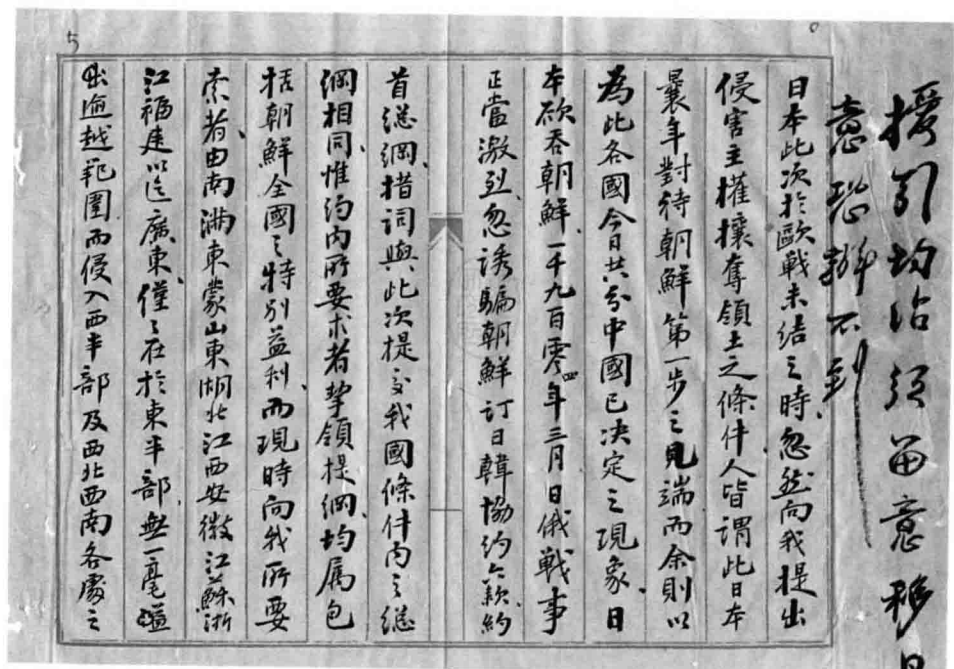 援引均沾須留意
意恐辦不到
日本此次於歐戰未結之時忽然向我提出
侵害主權攘奪領土之條件人皆謂此日本
曩年對待朝鮮第一步之見端而余則以
為此各國今日共分中國已決定之現象、日
本欲吞朝鮮、一千九百零四年三月日俄戰事
正當激烈忽誘騙朝鮮訂日韓協約六款、約
首總綱、措詞與此次提交我國條件內之總
綱相同、惟約內所要求者挈領提綱、均屬包
括朝鮮全國之特別益利、而現時向我所要
索者、由南滿東蒙山東湖北江西安徽江蘇浙
江福建以迄廣東、僅之在於東半部、無一毫溢
出逾越範圍而侵入西半部及西北西南各處之